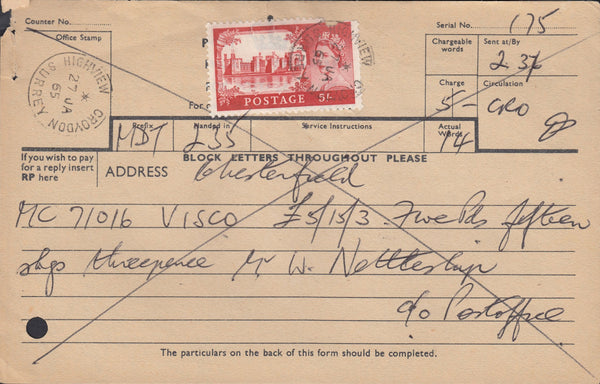 Counter No.
Serial No. 175
Office Stamp
Chargeable words
Sent at/By
2 36
HIGHVIEW
27 JA
65
CROYDON SURREY
POSTAGE 5/-
For
Charge
5/-
Circulation
CRO
Prefix
MDT
Handed in
2 55
Service Instructions
Actual Words
14
If you wish to pay for a reply insert RP here
BLOCK LETTERS THROUGHOUT PLEASE
ADDRESS Chesterfield
MC 71016 VISCO £5/15/3 Five Pds fifteen
shgs threepence Mr W. Nettleship
c/o Postoffice
The particulars on the back of this form should be completed.